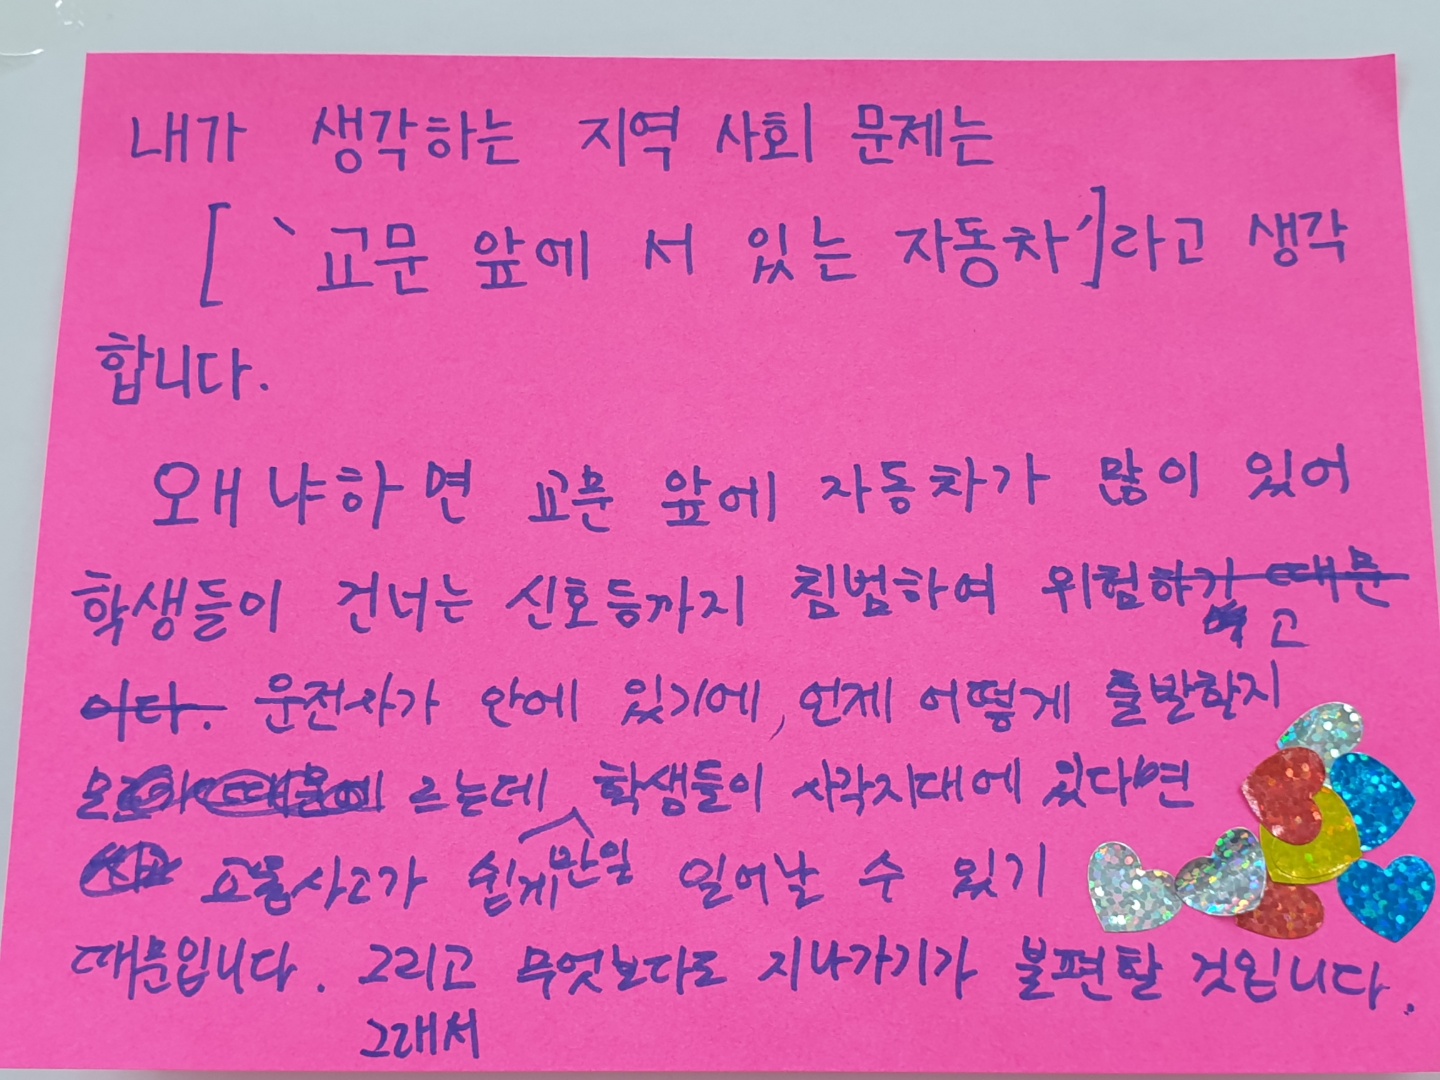 내가 생각하는 지역 사회 문제는
[ ‵교문 앞에 서 있는 자동차′]라고 생각
합니다.
왜냐하면 교문 앞에 자동차가 많이 있어
학생들이 건너는 신호등까지 침범하여 위험하기 때문
고
이다. 운전사가 안에 있기에, 언제 어떻게 출발할지
모르는데 학생들이 사각지대에 있다면
교통사고가 쉽게 만일 일어날 수 있기
때문입니다. 그리고 무엇보다도 지나가기가 불편할 것입니다.
그래서